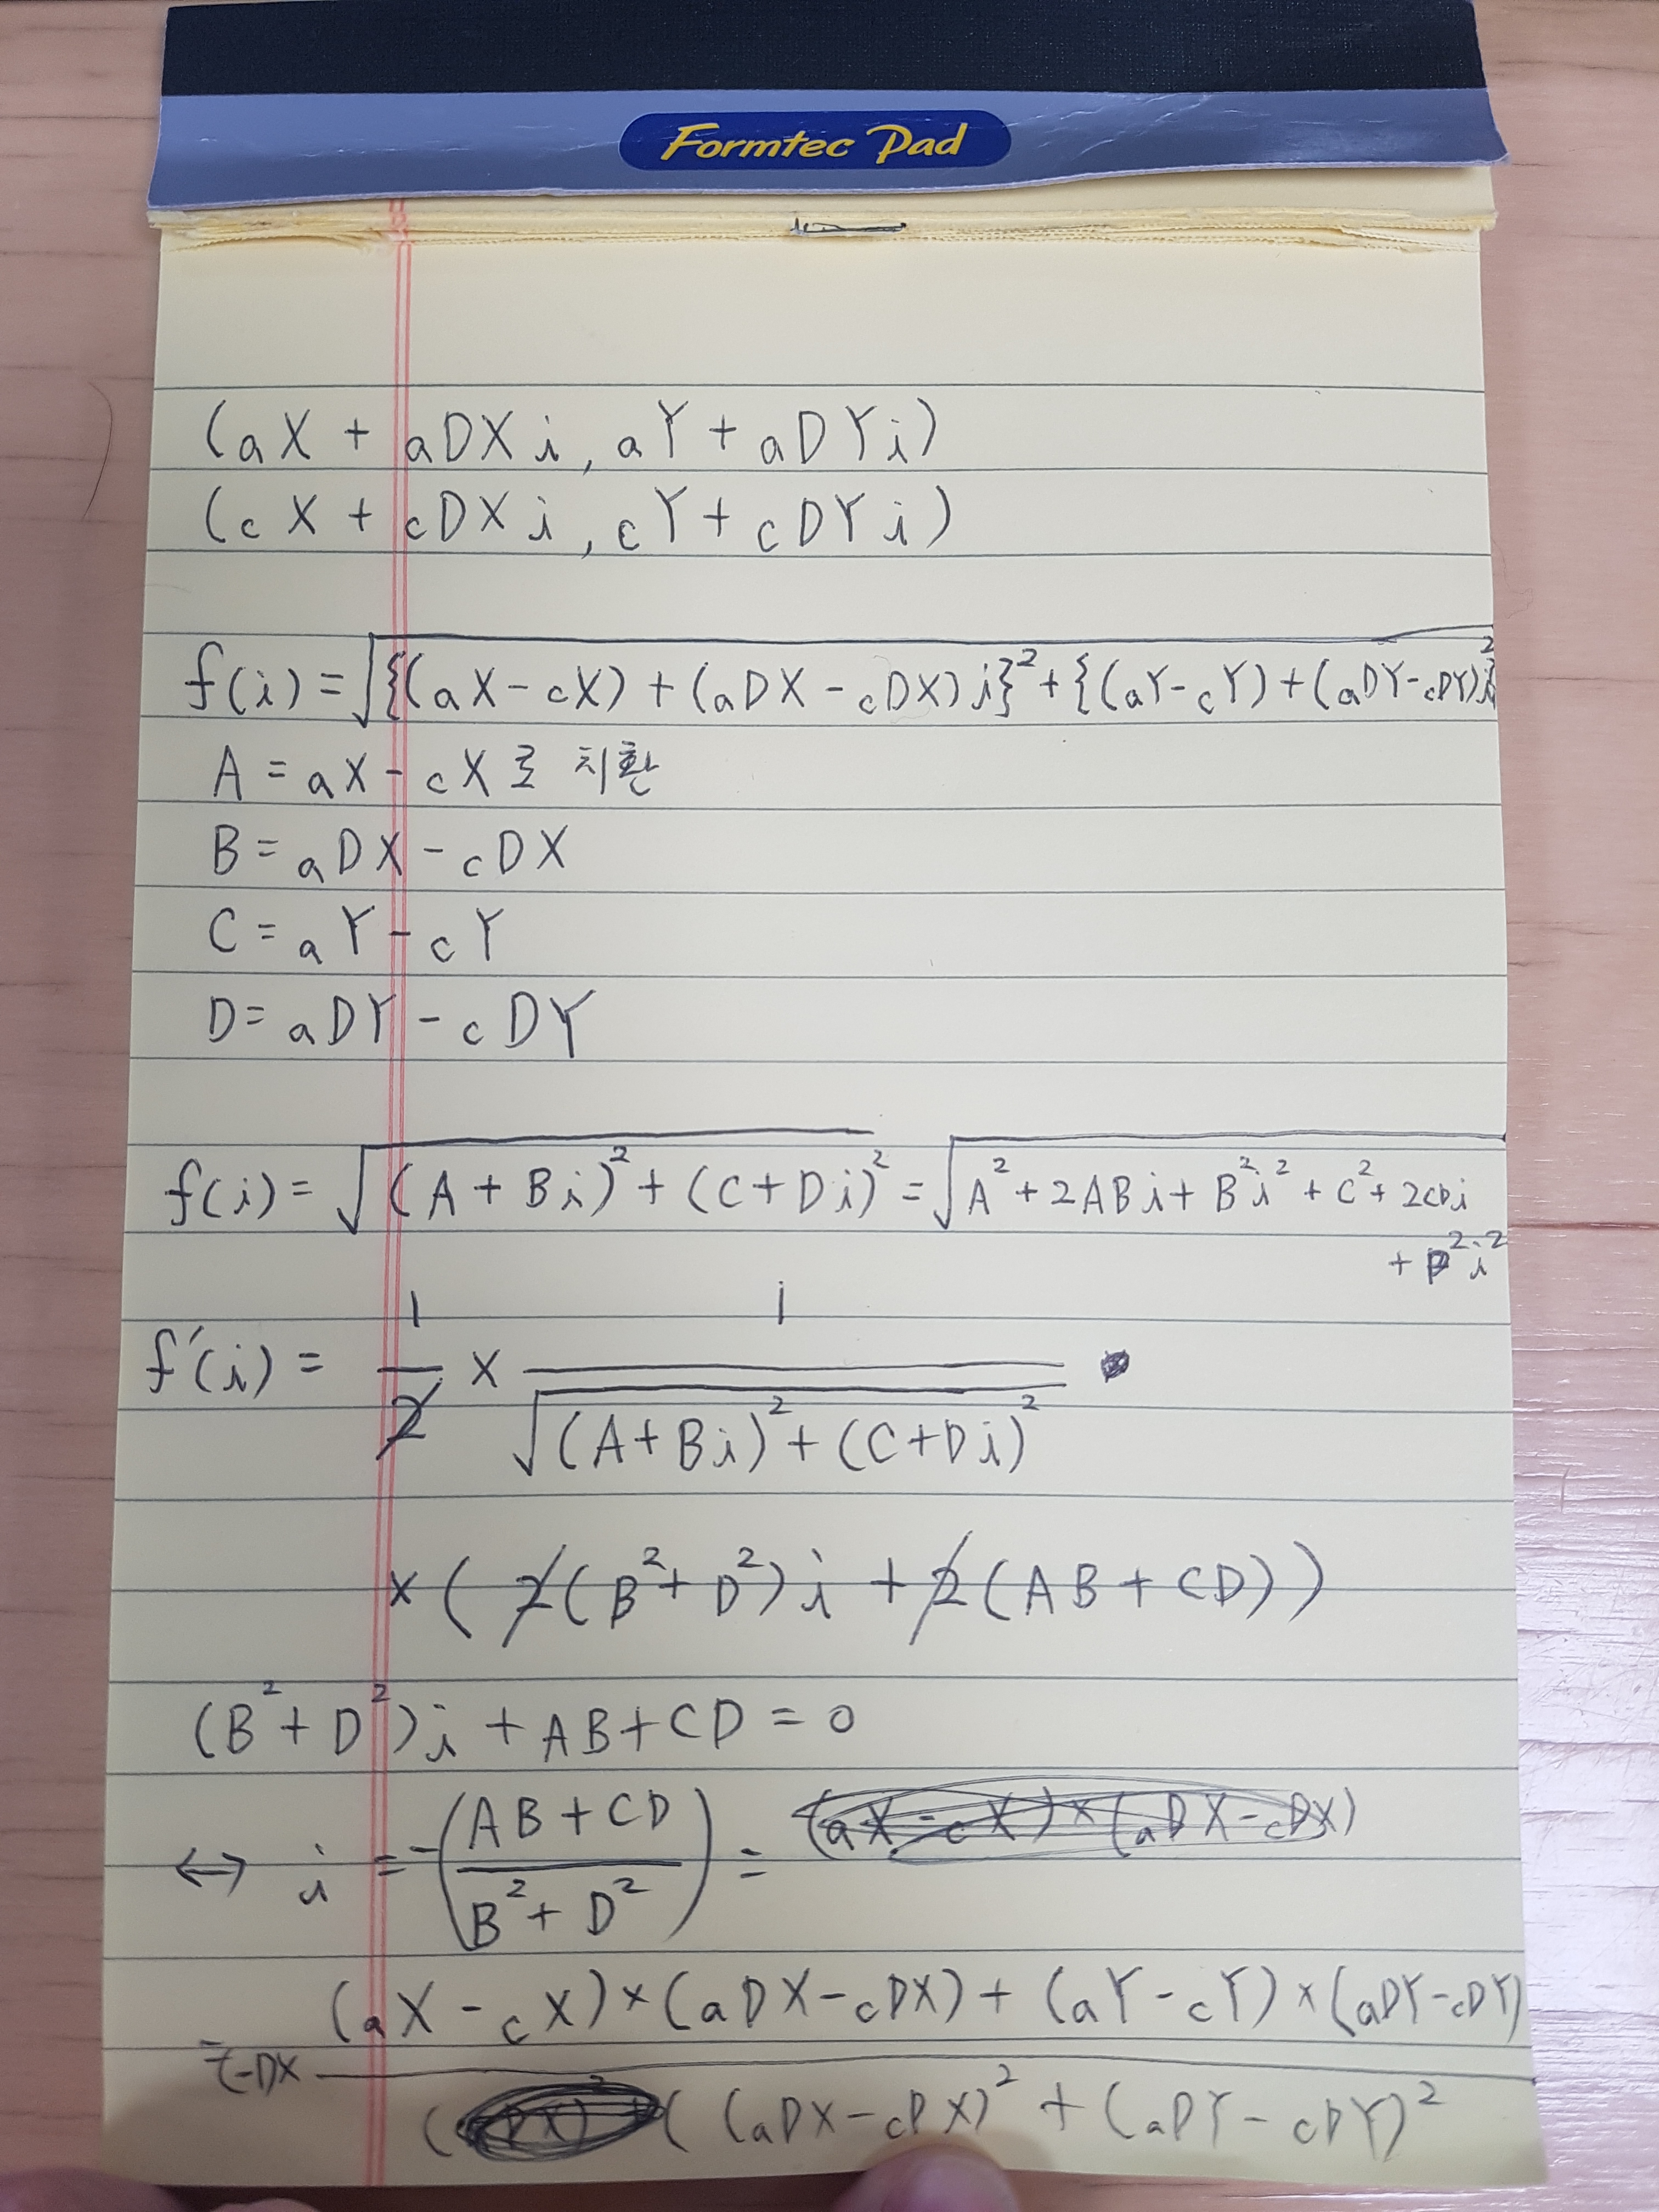 Formtec Pad
(aX + aDXi, aY + aDYi)
(cX + cDXi, cY + cDYi)
f(i) = √{(aX - cX) + (aDX - cDX)i}² + {(aY - cY) + (aDY - cDY)i}²
A = aX - cX로 치환
B = aDX - cDX
C = aY - cY
D = aDY - cDY
f(i) = √(A + Bi)² + (C + Di)² = √A² + 2ABi + B²i² + C² + 2CDi
+ D²i²
f'(i) = 1/2 × 1/√(A + Bi)² + (C + Di)²
× (2(B² + D²)i + 2(AB + CD))
(B² + D²)i + AB + CD = 0
↔ i = -(AB + CD / B² + D²) =
= (-1)× (aX - cX) × (aDX - cDX) + (aY - cY) × (aDY - cDY)
((aDX - cDX)² + (aDY - cDY)²